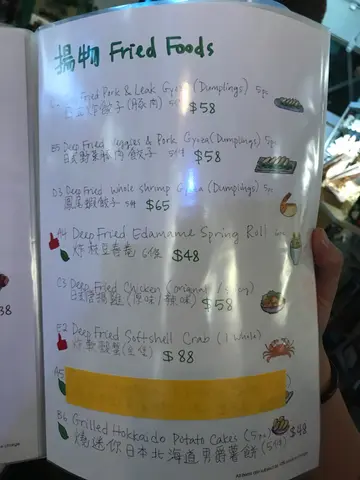 揚物 Fried Foods
Fried Pork & Leak Gyoza (Dumplings) 5pc
炸餃子 (豚肉) 5件 $58
E5 Deep Fried Veggies & Pork Gyoza (Dumplings) 5pc
日式野菜豚肉餃子 5件 $58
D3 Deep Fried Whole shrimp Gyoza (Dumplings) 5pc
鳳尾蝦餃子 5件 $65
A4 Deep Fried Edamame Spring Roll 6pc
炸枝豆春卷 6件 $48
C3 Deep Fried Chicken (original / spicy)
日式唐揚雞 (原味 / 辣味) $58
E2 Deep Fried Softshell Crab (1 whole)
炸軟殼蟹 $88
A5
B6 Grilled Hokkaido Potato Cakes (5pc) $48
燒迷你日本北海道男爵薯餅 (5件)
38